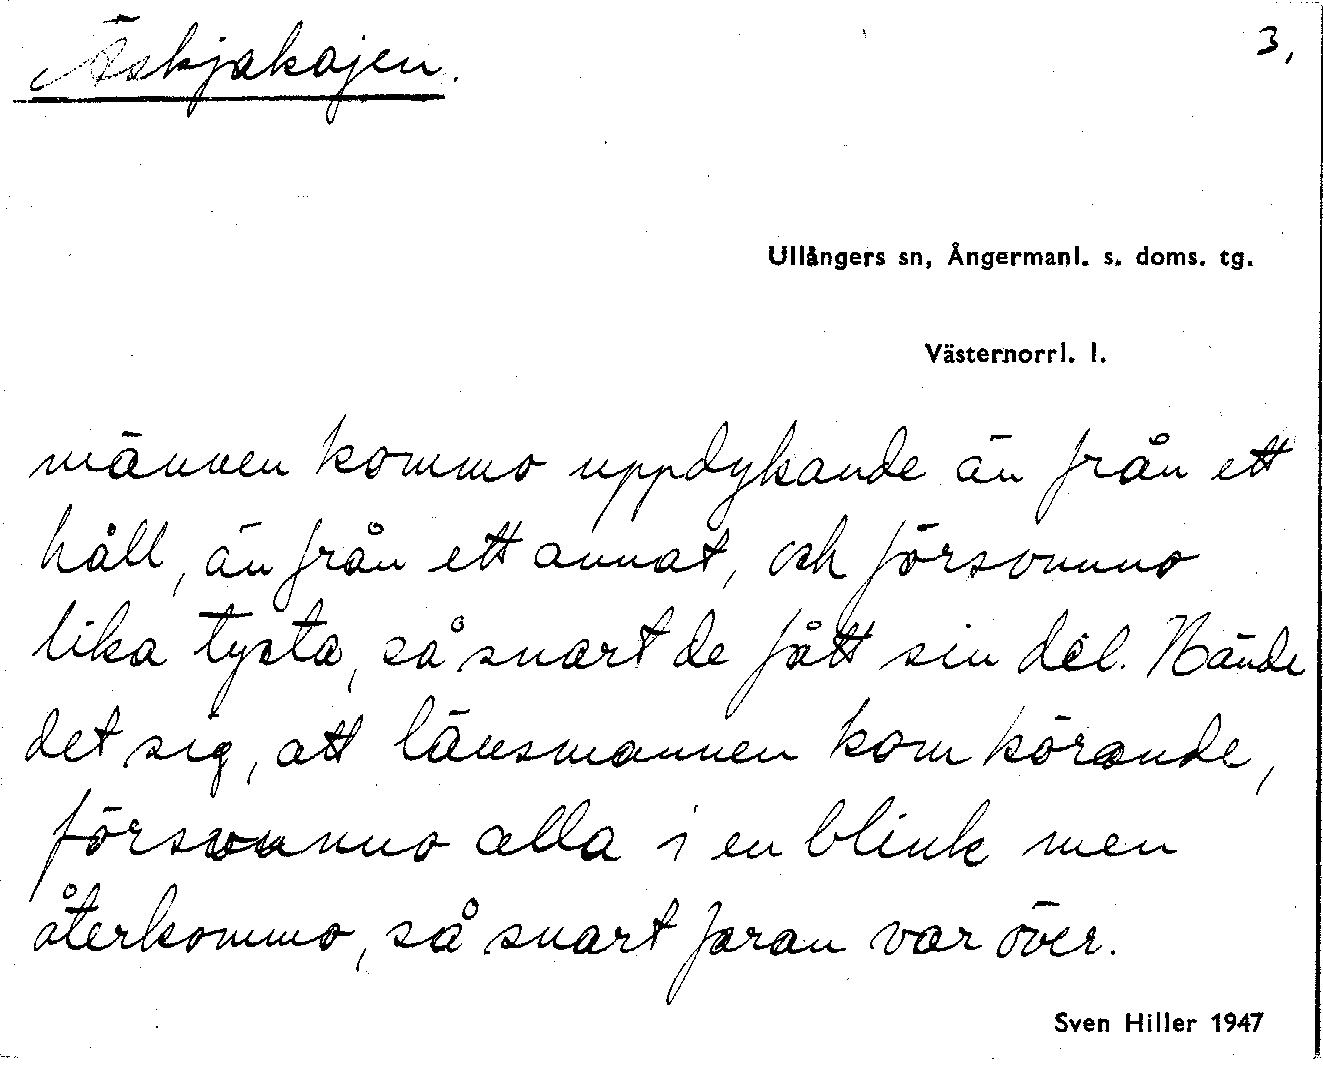 Äskjakajen.
3,
Ullångers sn, Ångermanl. s. doms. tg.
Västernorrl. l.
männen kommo uppdykande än från ett
håll, än från ett annat, och försvunno
lika tysta, så snart de fått sin del. Hände
det sig, att länsmannen kom körande,
försvunno alla i en blink men
återkommo, så snart faran var över.
Sven Hiller 1947